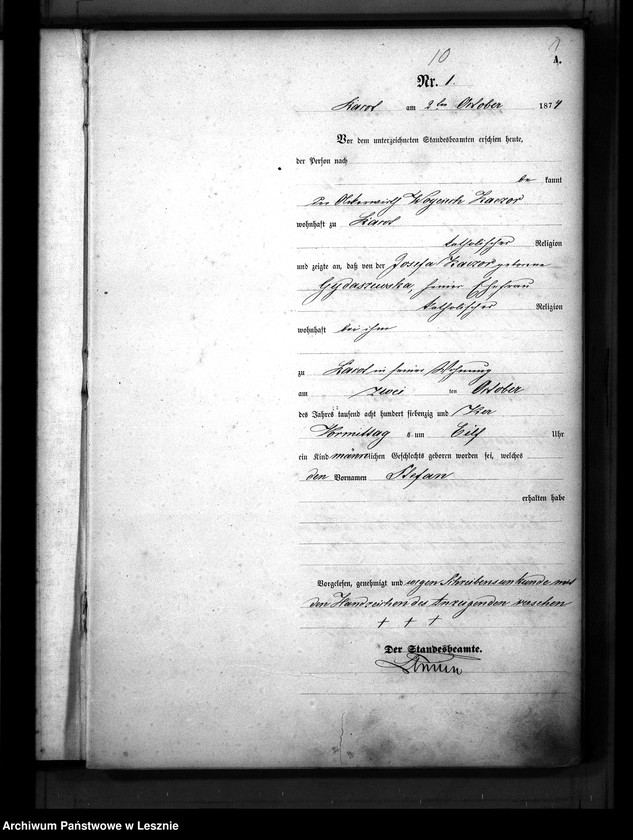 10
A.
Nr. 1.
am 2ten October 1874
Vor dem unterzeichneten Standesbeamten erschien heute,
der Person nach
be kannt
Der Ackerwirth Woyciech Kaczor
wohnhaft zu
katholischer Religion
und zeigte an, daß von der Josefa Kaczor geborene
seiner Ehefrau
katholischer Religion
wohnhaft bei ihm
zu in seiner Wohnung
am zwei ten October
des Jahres tausend acht hundert siebenzig und vier
Vormittag s um Eilf Uhr
ein Kind männlichen Geschlechts geboren worden sei, welches
den Vornamen Stefan
erhalten habe
Vorgelesen, genehmigt und wegen Schreibensunkunde mit
den Handzeichen des Anzeigenden versehen
+ + +
Der Standesbeamte.
Archiwum Państwowe w Lesznie